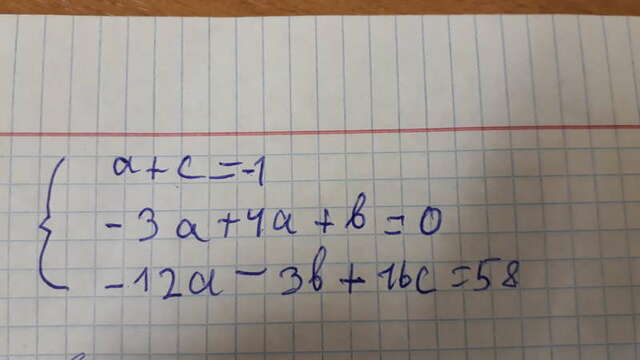 a+c=-1
-3a+4a+b=0
-12a-3b+16c=58